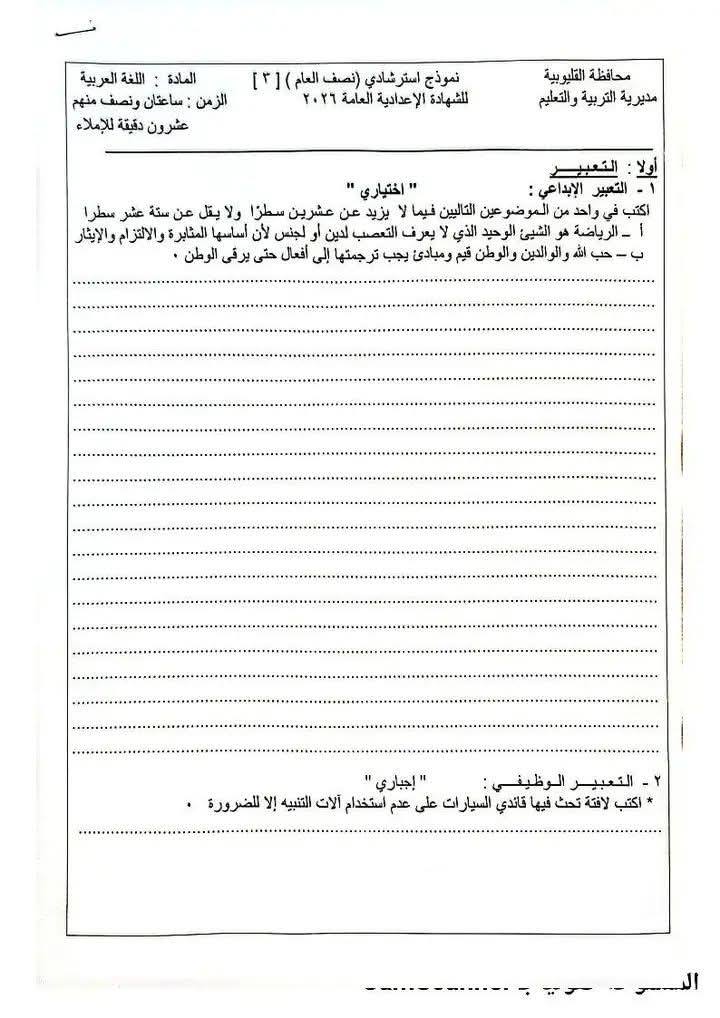 محافظة القليوبية
مديرية التربية والتعليم
نموذج استرشادي (نصف العام ) [ ٣ ]
للشهادة الإعدادية العامة ٢٠٢٦
المادة : اللغة العربية
الزمن : ساعتان ونصف منهم
عشرون دقيقة للإملاء
أولا : التعبير
١ - التعبير الإبداعي : " اختياري "
اكتب في واحد من الموضوعين التاليين فيما لا يزيد عن عشرين سطرًا ولا يقل عن ستة عشر سطرا
أ ـ الرياضة هو الشيئ الوحيد الذي لا يعرف التعصب لدين أو لجنس لأن أساسها المثابرة والالتزام والإيثار
ب – حب الله والوالدين والوطن قيم ومبادئ يجب ترجمتها إلى أفعال حتى يرقى الوطن ٠
٢ - التعبير الوظيفي : " إجباري "
* اكتب لافتة تحث فيها قائدي السيارات على عدم استخدام آلات التنبيه إلا للضرورة ٠